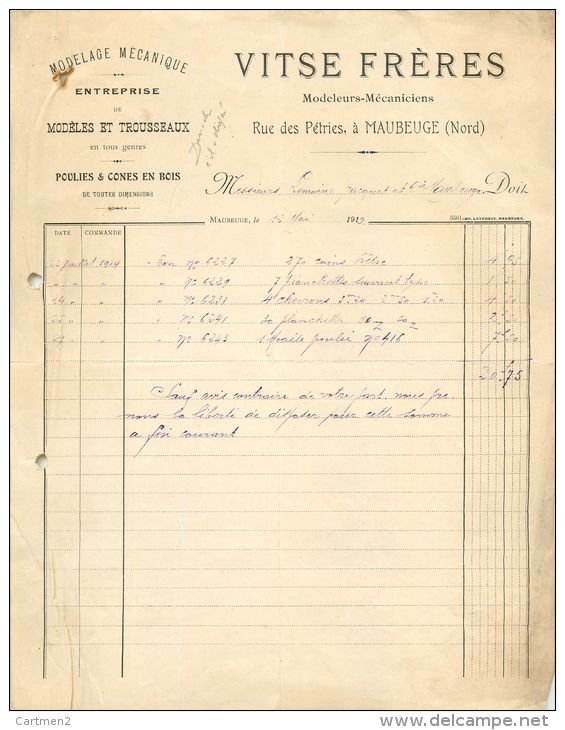 MODELAGE MÉCANIQUE
ENTREPRISE
DE
MODÈLES ET TROUSSEAUX
en tous genres
POULIES & CONES EN BOIS
DE TOUTES DIMENSIONS
VITSE FRÈRES
Modeleurs-Mécaniciens
Rue des Pétries, à MAUBEUGE (Nord)
Messieurs Jacquet & Cie à Maubeuge Doit
MAUBEUGE, le 12 Mai 1919
5501 IMP. LEVECQUE, MAUBEUGE.
DATE COMMANDE
22 Juillet 1914 Bon No 6227 270 coins hêtre
" " " " No 6229 7 planchettes suivant type
24 " " " No 6231 4 chevrons
25 " " " No 6241 30 planchettes
27 " " " No 6243 1 Modèle poulie No 416 7 50
20 75
Sauf avis contraire de votre part, nous pre-
nons la liberté de disposer pour cette somme
a fin courant
Cartmen2
www.delcampe.net